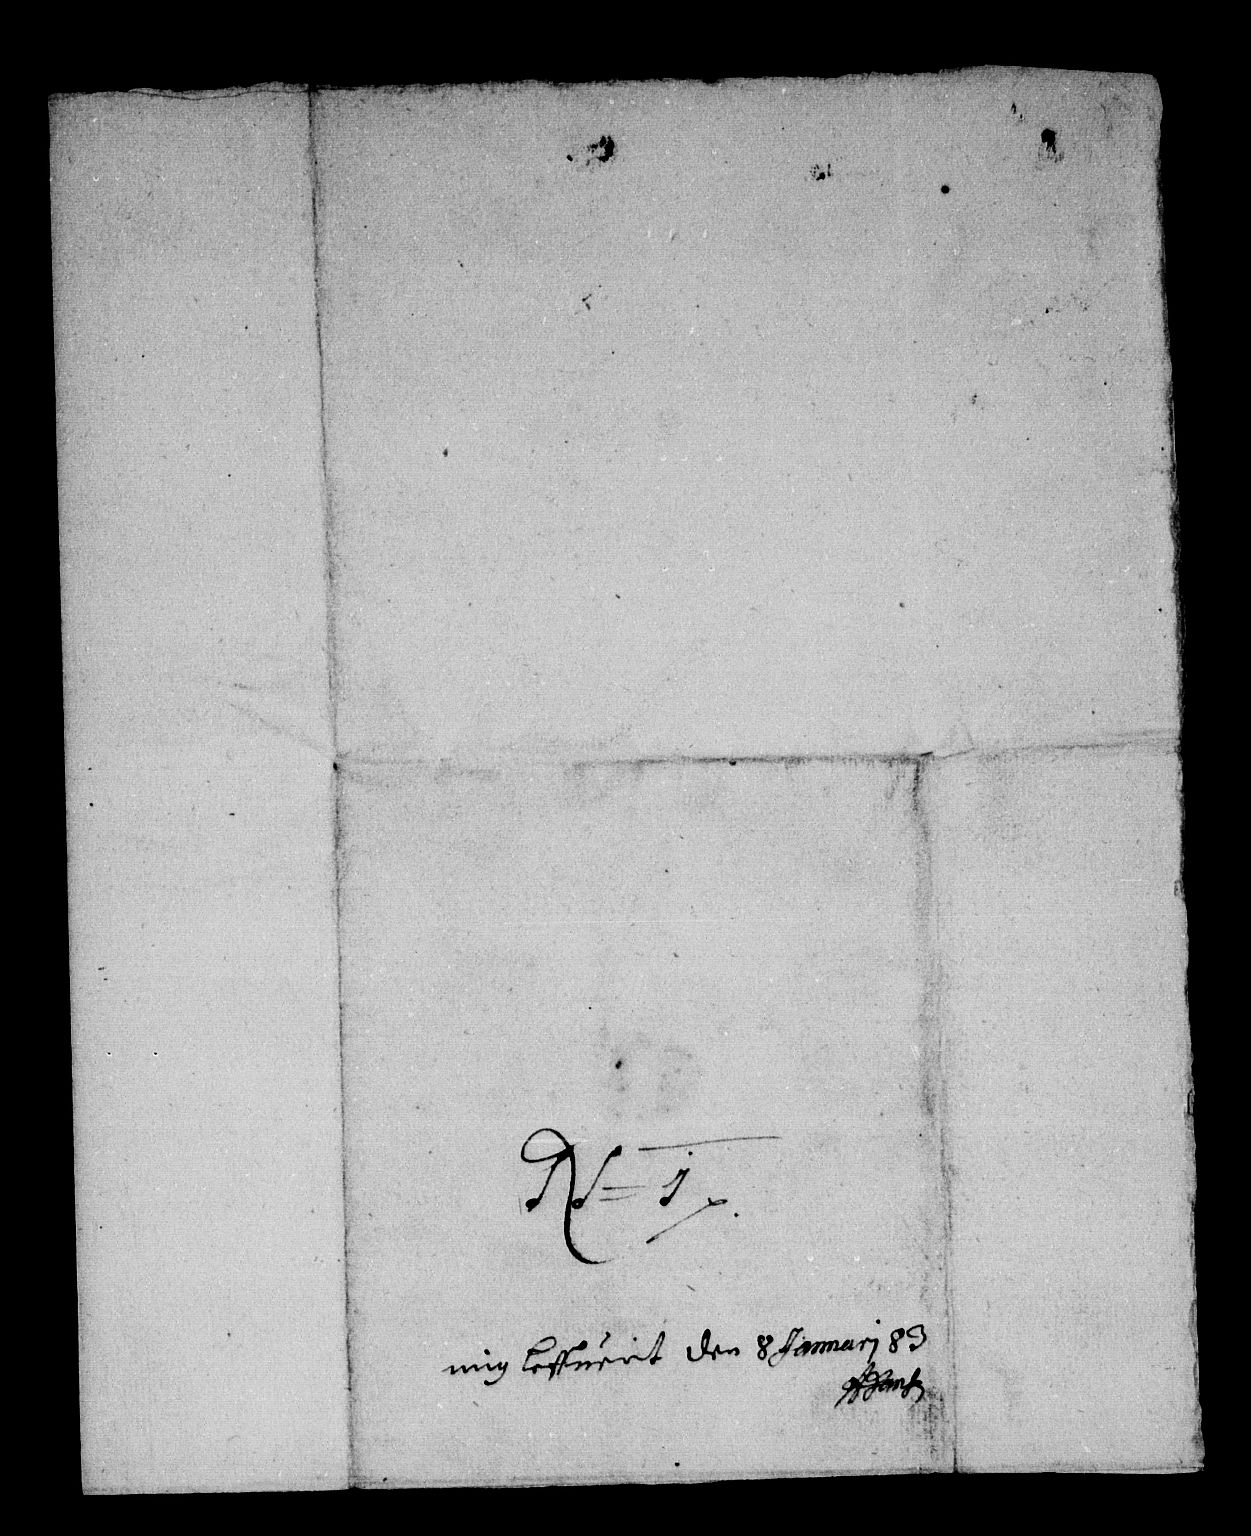 N = 1
mig lefhuerit den 8 Januarj 83